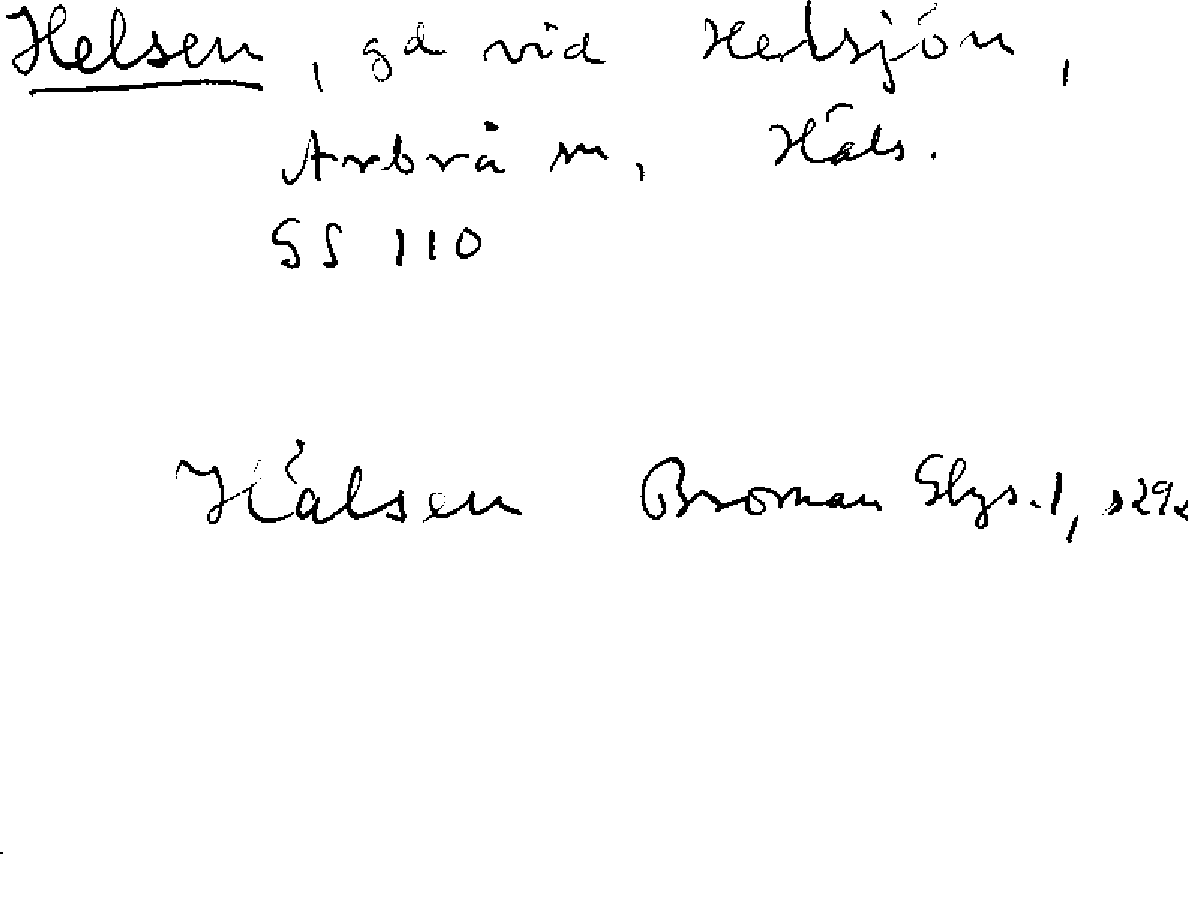 Helsen, gd vid Helsjön,
Arbrå sn, Häls.
SS 110
Hälsen Broman Glys. 1, s 29